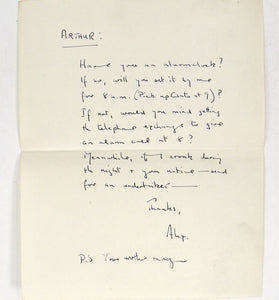 ARTHUR:
Have you an alarmclock?
If so, will you set it by me
for 8 a.m. (Pick up Cento at 9)?
If not, would you mind getting
the telephone exchange to give
an alarm call at 8?
Meanwhile, if I croak during
the night & you notice — send
for an undertaker —
Thanks,
P.S. Your mother rang